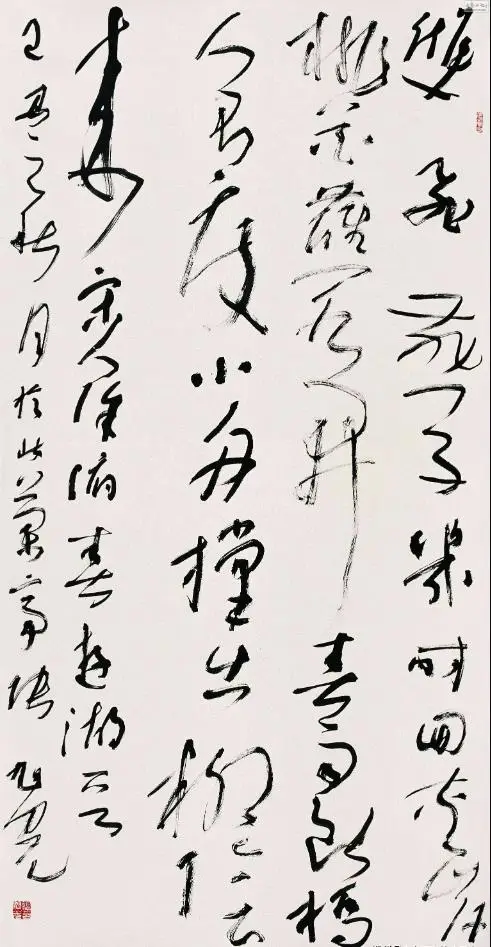 雙飛燕子幾時回夾岸
桃花蘸水開春雨斷橋
人不度小舟撐出柳陰
來 宋人徐俯春遊湖
之秋月於北蘭亭張旭光